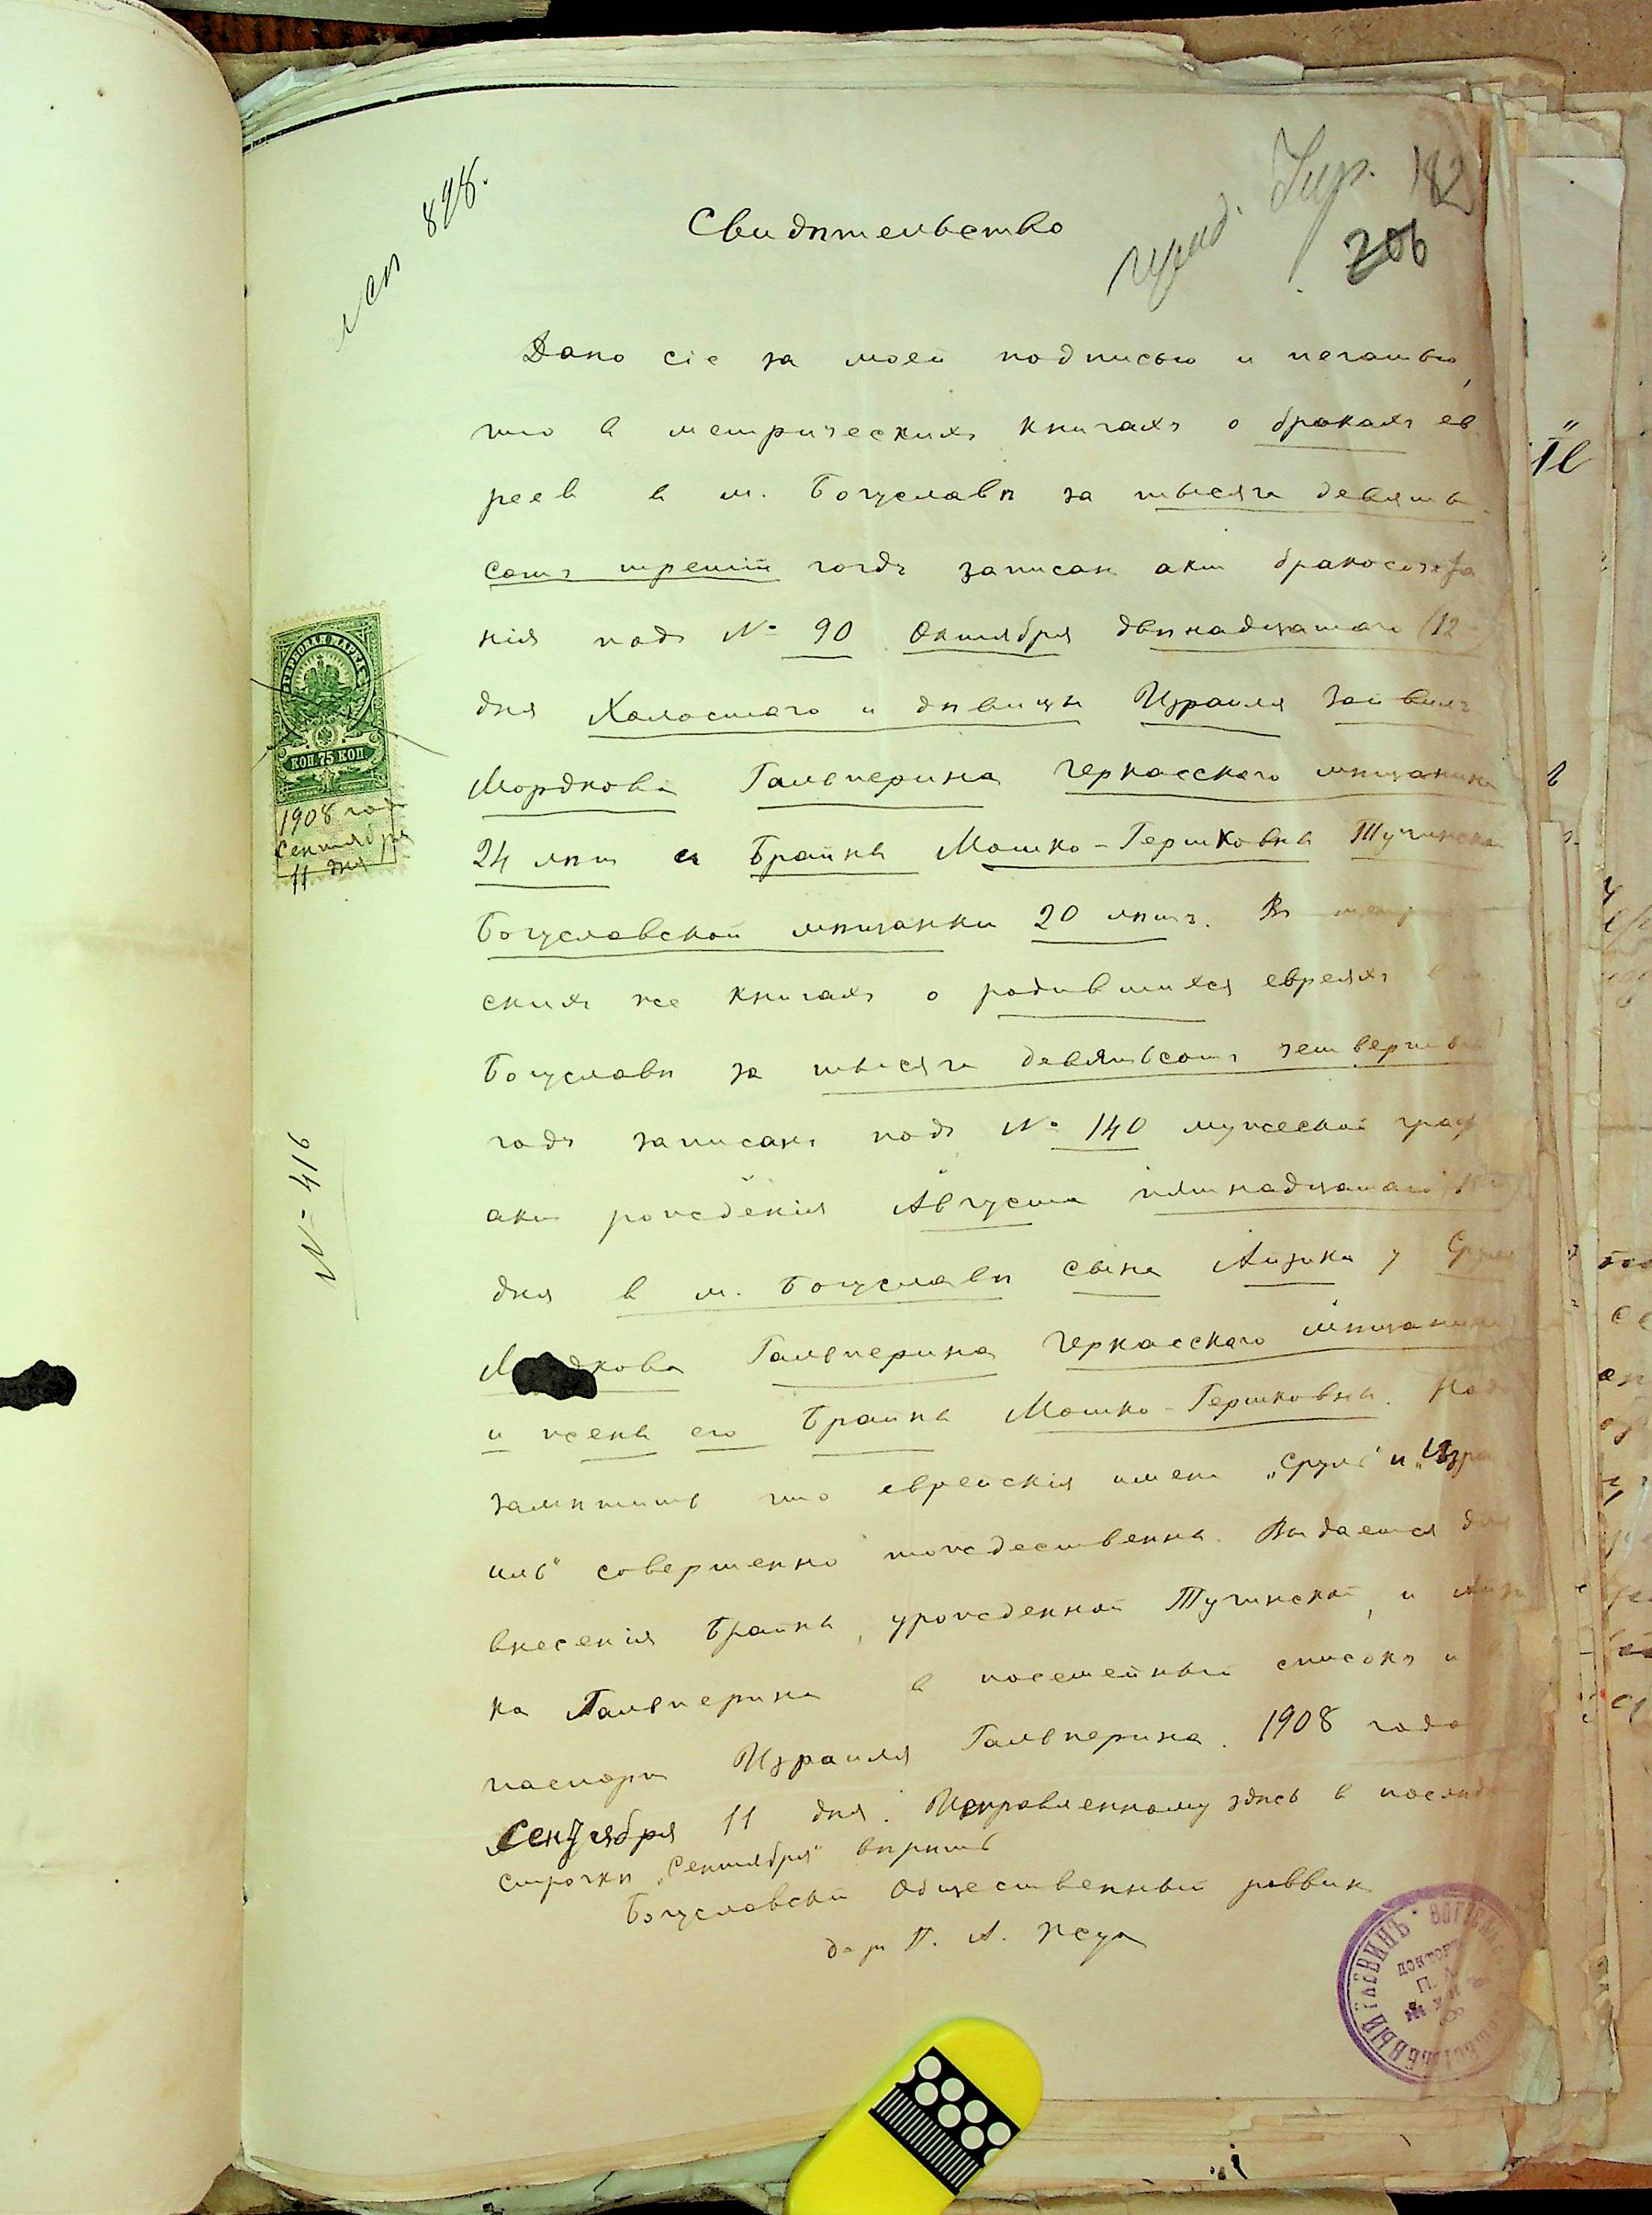 898.
182
206
Свидѣтельство
Дано сіе за моей подписью и печатью,
что в метрических книгахъ о бракахъ ев
реев в м. Богуславѣ за тысяча девять
сотъ третій годъ записан акт бракосочета
нія подъ № 90 Октября двѣнадцатаго (12
дня Холостаго и дѣвицы Израиля
Мордкова Гальперина Черкасского мѣщанина
24 лѣт и Брайны Мошко-Гершковны Тучинской
Богуславской мѣщанки 20 лѣтъ. Въ метриче
ских же книгахъ о родившихся евреяхъ в м.
Богуславѣ за тысяча девятьсотъ четвертый
годъ записанъ подъ № 140 мужеской граф
акт рожденія Августа пятнадцатаго
дня в м. Богуславѣ сына Айзика у Сруля
Мордкова Гальперина Черкасского мѣщанина
и жены его Брайны Мошко-Гершковны. Надо
замѣтить что еврейскія имена „Сруль" и „Изра
иль" совершенно тождественны. Выдается для
внесенія Брайны, урожденной Тучинской, и Айзи
ка Гальперина в посемейный списокъ и в
паспорт Израиля Гальперина. 1908 года
Сентября 11 дня. Исправленному здѣсь в послѣдней
строчкѣ „Сентября" вѣрить
Богуславскій Общественный раввин
д-р П. А. Жук
ГЕРБОВАЯ МАРКА
КОП. 75 КОП.
1908 года
Сентября
11 дня
№ 416
ДОКТОРЪ
П. А.